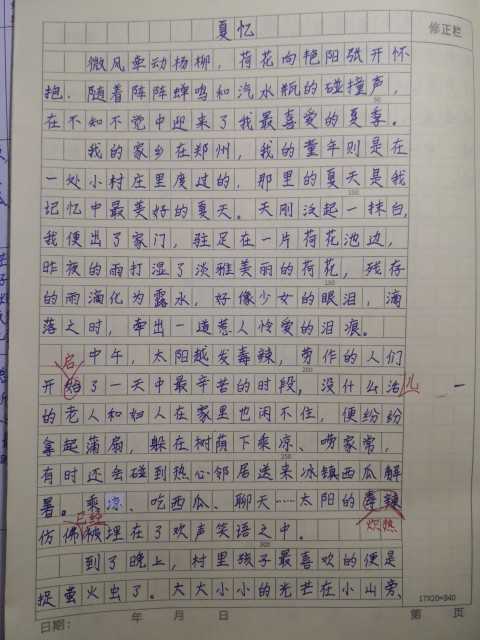 夏忆
修正栏
微风牵动杨柳，荷花向艳阳张开怀
抱．随着阵阵蝉鸣和汽水瓶的碰撞声，
在不知不觉中迎来了我最喜爱的夏季。
50
我的家乡在郑州，我的童年则是在
一处小村庄里度过的，那里的夏天是我
记忆中最美好的夏天。天刚泛起一抹白，
我便出了家门，驻足在一片荷花池边，
昨夜的雨打湿了淡雅美丽的荷花，残存
的雨滴化为露水，好像少女的眼泪，滴
150
落之时，牵出一道惹人怜爱的泪痕。
中午，太阳越发毒辣，劳作的人们
启
200
开始了一天中最辛苦的时段，没什么活
儿
的老人和妇人在家里也闲不住，便纷纷
拿起蒲扇，躲在树荫下乘凉、唠家常，
250
有时还会碰到热心邻居送来冰镇西瓜解
暑。乘凉、吃西瓜、聊天……太阳的毒辣
已经
炽热
仿佛被埋在了欢声笑语之中。
300
到了晚上，村里孩子最喜欢的便是
捉萤火虫了。大大小小的光芒在小山旁、
17X20=340
日期： 年 月 日 第 页